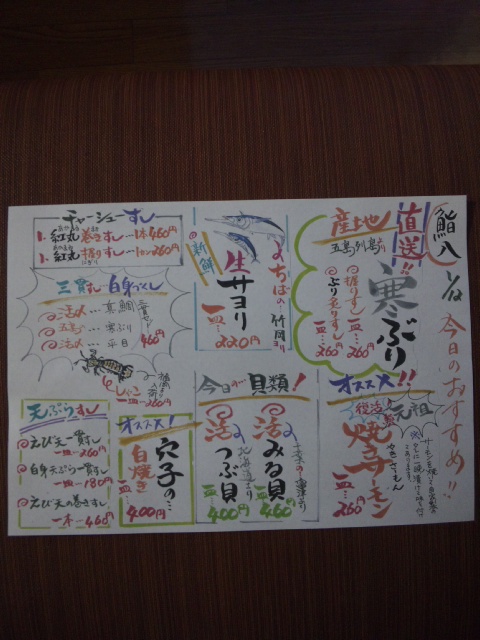 鮨八
今日のおすすめ!!
産地直送!!
五島列島より
寒ぶり
握りずし
一皿…260円
ぶり炙りずし
一皿…260円
新鮮
ちばの竹岡より
生サヨリ
一皿…220円
チャーシューすし
巻きすし…1本460円
握りすし
三貫すし 白身づくし
活〆…真鯛
五島…寒ぶり
活〆…平目
460円
しゃこ
一皿…260円
オススメ!!
元祖
焼きサーモン
やきさーもん
一皿…260円
今日の貝類!
活〆
みる貝
一皿…460円
活〆
北海道より
つぶ貝
一皿…400円
オススメ!
穴子の…
白焼き
一皿…400円
天ぷらすし
えび天一貫すし
一皿…260円
白身天ぷら一貫すし
一皿…180円
えび天の巻きすし
一本…460円